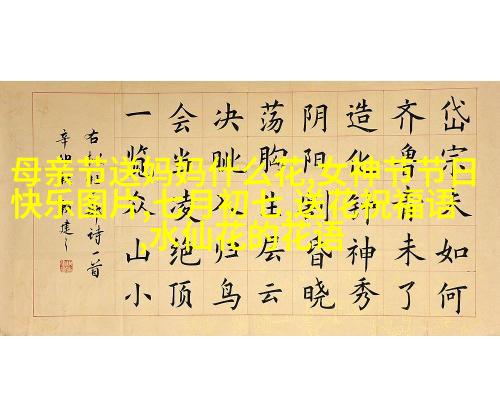 母亲节送妈妈什么花,女神节节日
快乐图片,七月初七,送花祝福语
,水仙花的花语
岱宗夫如何
齐鲁青未了
造化钟神秀
阴阳割昏晓
荡胸生层云
决眦入归鸟
会当凌绝顶
一览众山小
右诗一首
辛建之